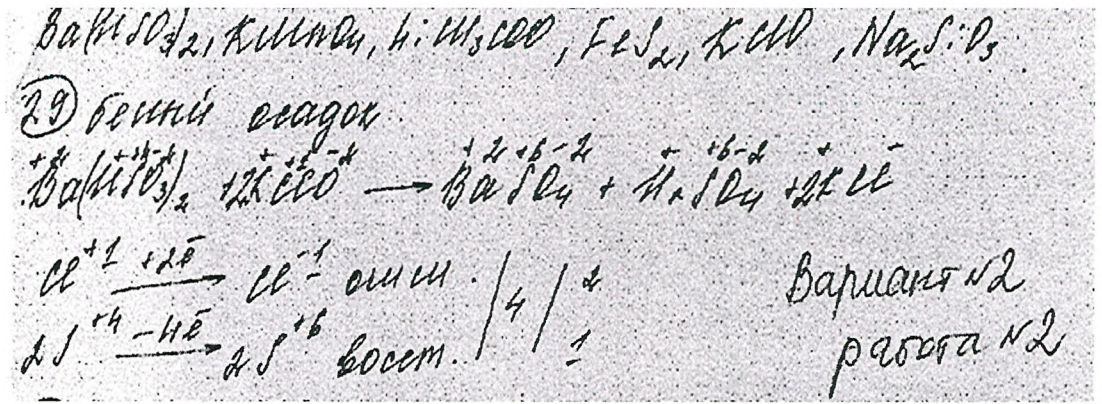 Ba(HSO₃)₂, KMnO₄, LiCH₃COO, FeS₂, KClO, Na₂SiO₃
29 белый осадок
Ba(HSO₃)₂ + 2KClO → BaSO₄ + H₂SO₄ + 2KCl
Cl⁺¹ +2ē → Cl⁻¹ окисл. | 4 | 2
2S⁺⁴ −4ē → 2S⁺⁶ восст. | | 1
Вариант №2
работа №2